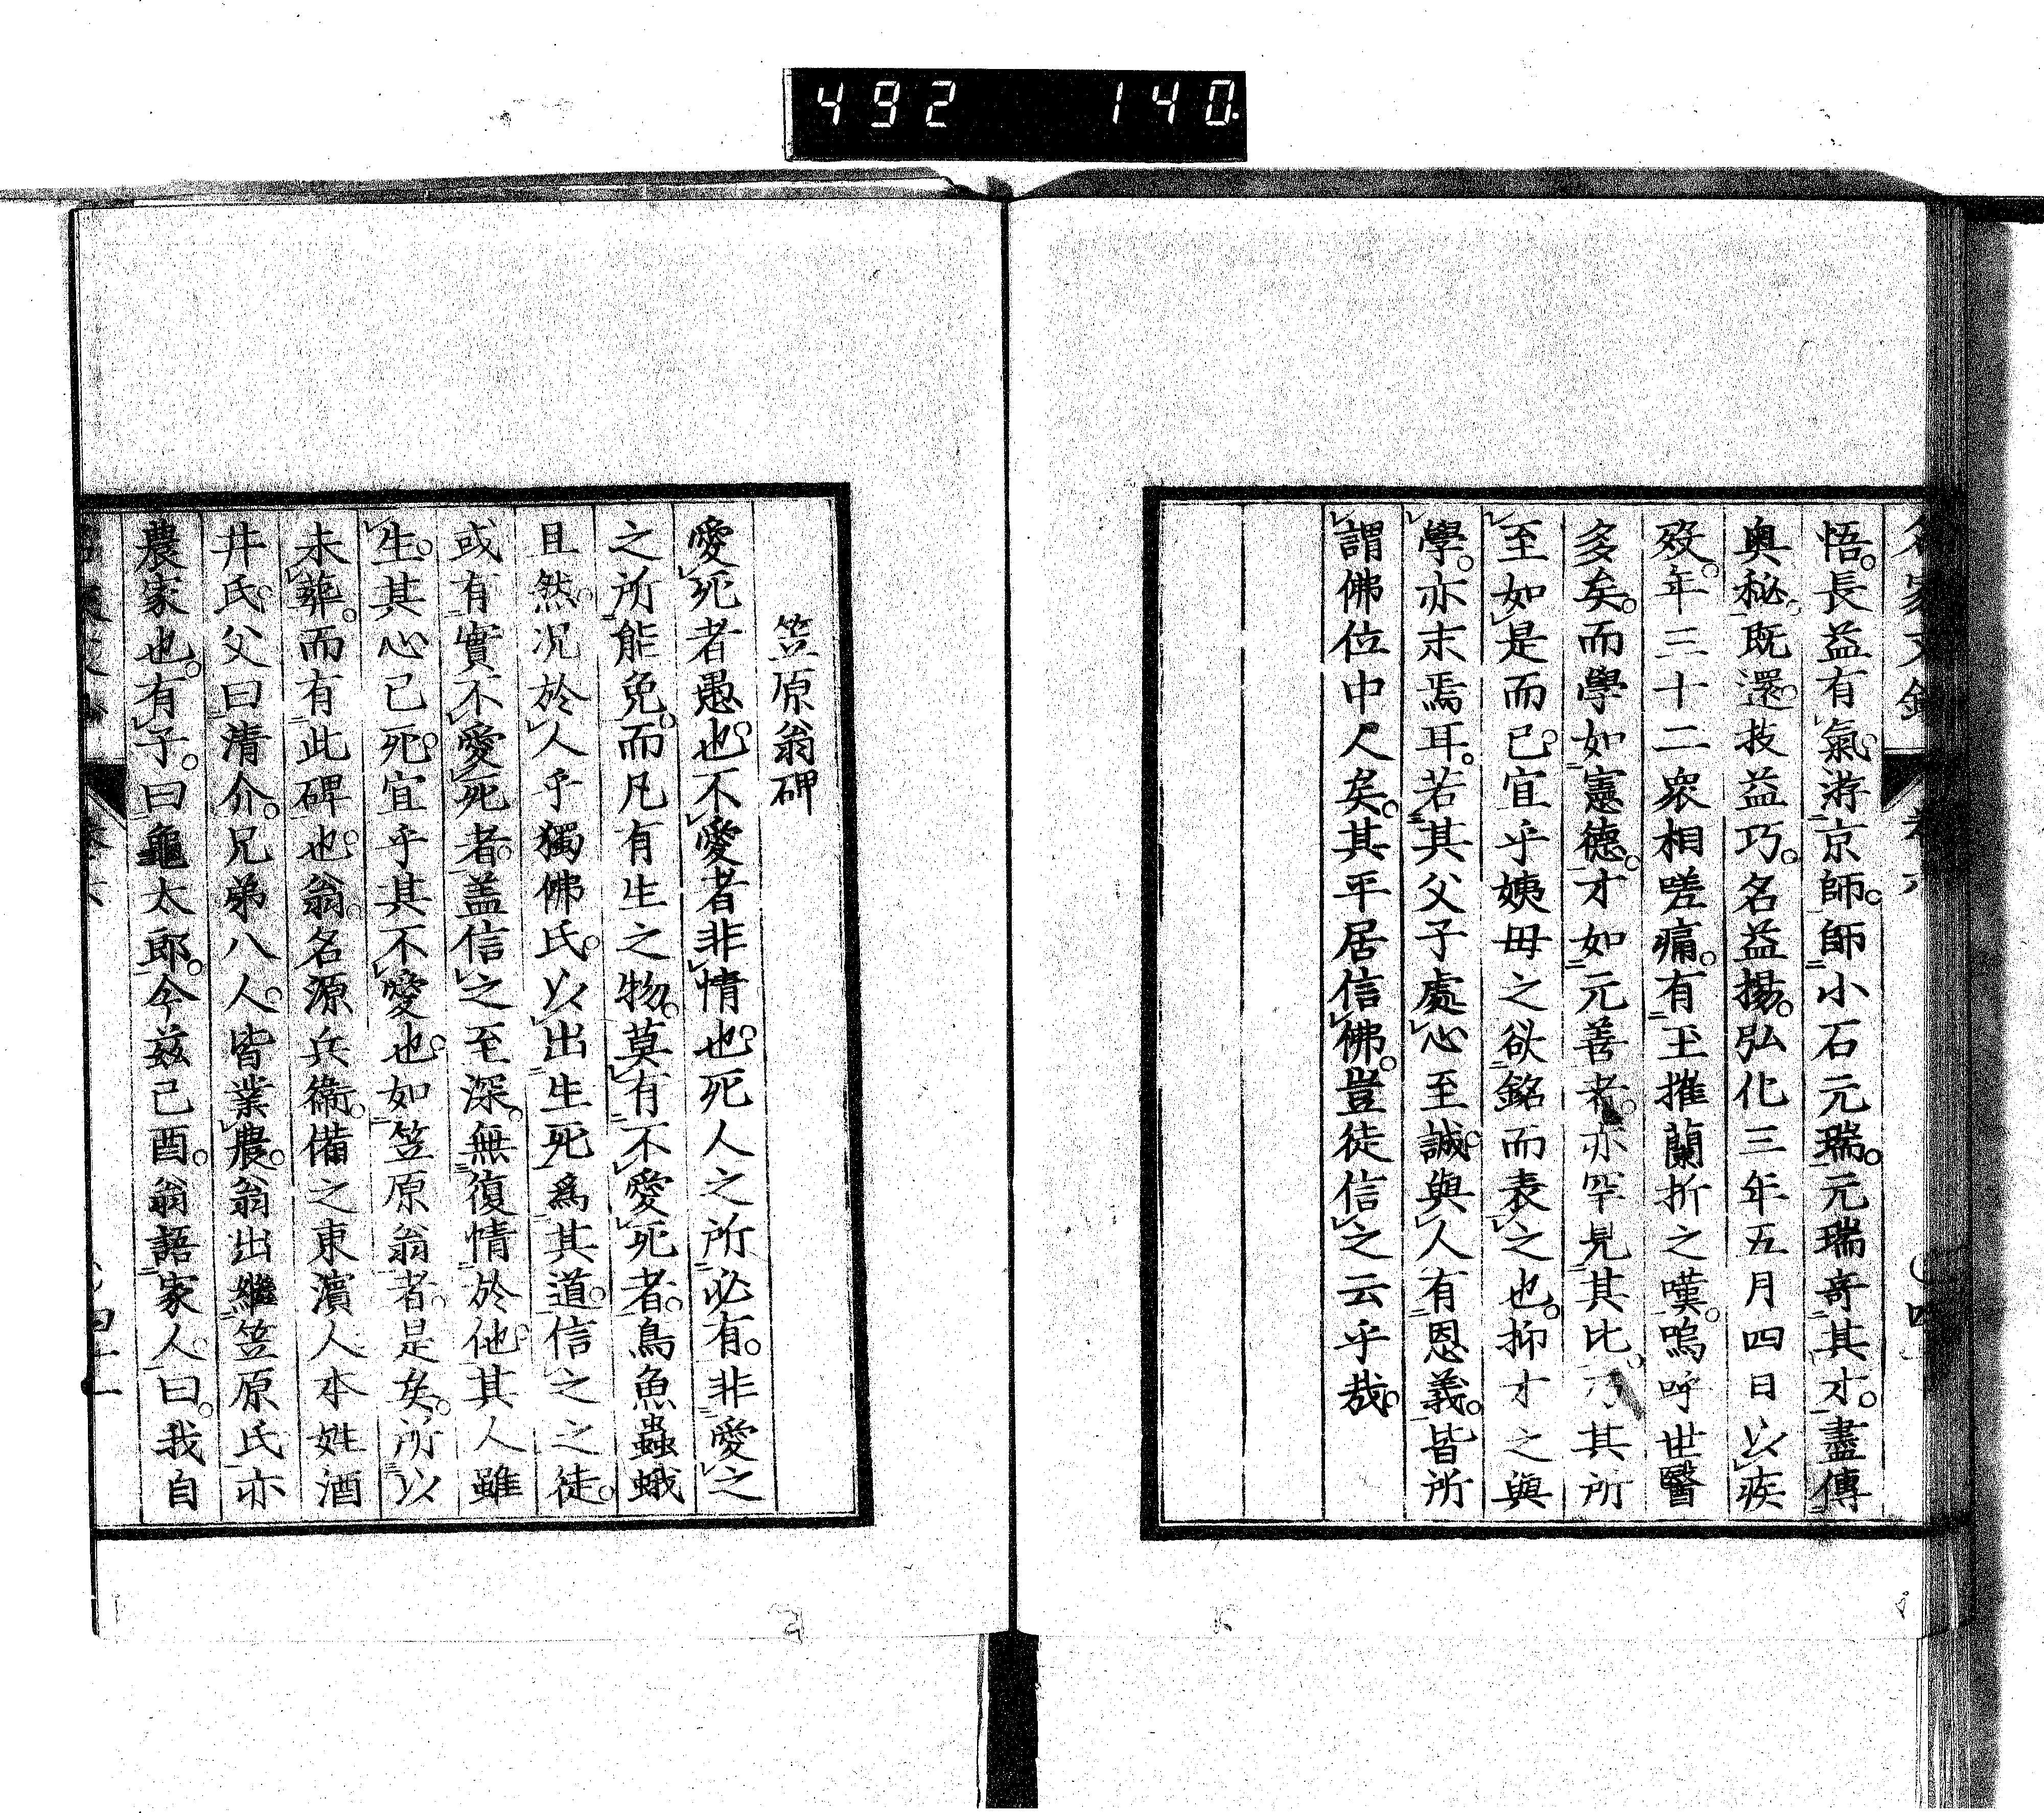 492 140
悟。長益有氣。游京師。師小石元瑞。元瑞奇其才。盡傳
奥秘。既還。技益巧。名益揚。弘化三年五月四日以疾
歿。年三十二。衆相嗟痛。有玉摧蘭折之嘆。嗚呼世醫
多矣。而學如憲德。才如元善者。亦罕見其比。乃其所
至如是而已。宜乎姨母之欲銘而表之也。抑才之與
學。亦末焉耳。若其父子處心至誠。與人有恩義。皆所
謂佛位中人矣。其平居信佛。豈徒信之云乎哉。
笠原翁碑
愛死者愚也。不愛者非情也。死人之所必有。非愛之
之所能免。而凡有生之物。莫有不愛死者。鳥魚蟲蛾
且然。况於人乎。獨佛氏。以出生死爲其道。信之之徒。
或有實不愛死者。蓋信之至深。無復情於他。其人雖
生。其心已死。宜乎其不愛也。如笠原翁者。是矣。所以
未葬。而有此碑也。翁。名源兵衞。備之東濵人本姓酒
井氏。父曰清介。兄弟八人。皆業農。翁出繼笠原氏亦
農家也。有子。曰龜太郎。今兹己酉。翁語家人。曰。我自